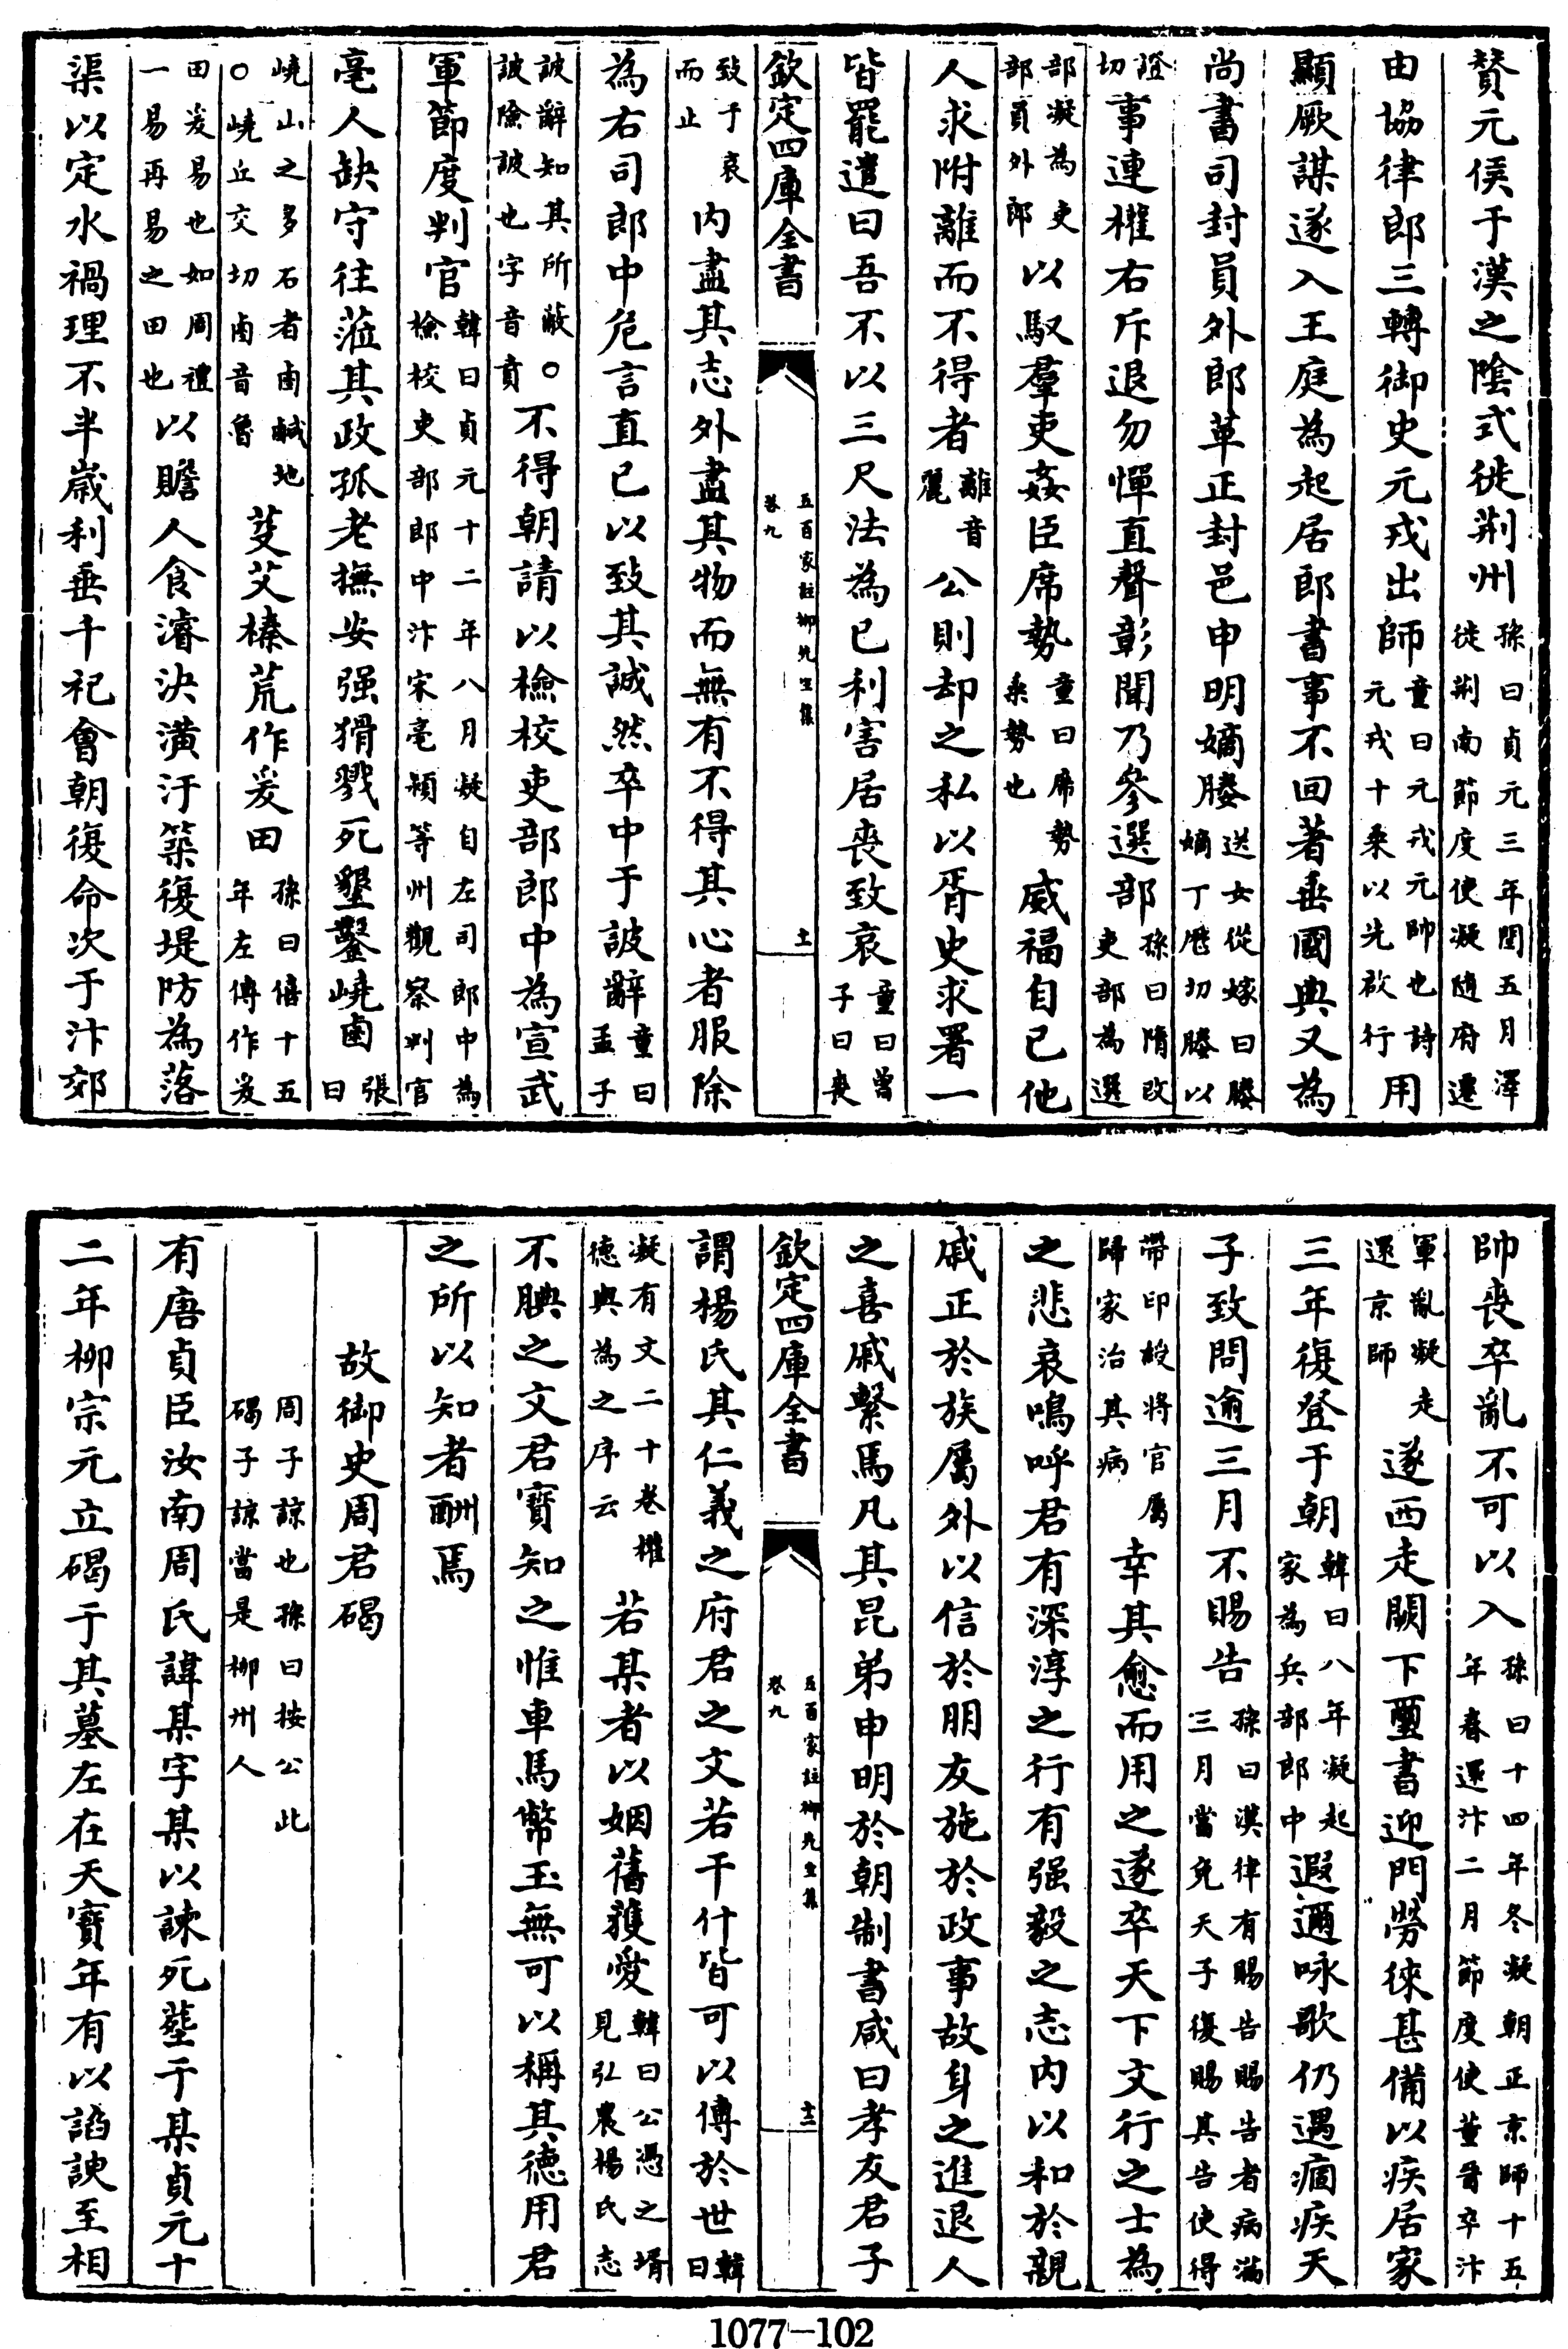 贊元侯于漢之陰式徙荆州孫曰貞元三年閏五月澤徙荆南節度使凝隨府遷
由協律郎三轉御史元戎出師童曰元戎元帥也詩元戎十乘以先啟行用
顯厥謀遂入王庭為起居郎書事不回著垂國典又為
尚書司封員外郎革正封邑申明嫡媵送女從嫁曰媵嫡丁厯切媵以
證切事連權右斥退勿憚直聲彰聞乃參選部孫曰隋改吏部為選
部凝為吏部員外郎以馭羣吏姦臣席勢童曰席勢乘勢也威福自已他
人求附離而不得者離音麗公則却之私以胥史求署一
皆罷遣曰吾不以三尺法為已利害居喪致哀童曰曾子曰喪
欽定四庫全書 五百家註柳先生集卷九 十一
致于哀而止內盡其志外盡其物而無有不得其心者服除
為右司郎中危言直已以致其誠然卒中于詖辭童曰孟子
詖辭知其所蔽○詖險詖也字音賁不得朝請以檢校吏部郎中為宣武
軍節度判官韓曰貞元十二年八月凝自左司郎中為檢校吏部郎中汴宋亳穎等州觀察判官
亳人缺守往蒞其政孤老撫安强猾戮死墾鑿嶢鹵張曰
嶢山之多石者鹵鹹地○嶢丘交切鹵音魯芟艾榛荒作爰田孫曰僖十五年左傳作爰
田爰易也如周禮一易再易之田也以贍人食濬決潢汙築復堤防為落
渠以定水禍理不半歲利垂千祀會朝復命次于汴郊
帥喪卒亂不可以入孫曰十四年冬凝朝正京師十五年春還汴二月節度使董晉卒汴
軍亂凝走還京師遂西走闕下璽書迎門勞徠甚備以疾居家
三年復登于朝韓曰八年凝起家為兵部郎中遐邇咏歌仍遇痼疾天
子致問逾三月不賜告孫曰漢律有賜告賜告者病滿三月當免天子復賜其告使得
帶印綬將官屬歸家治其病幸其愈而用之遂卒天下文行之士為
之悲哀嗚呼君有深淳之行有强毅之志內以和於親
戚正於族屬外以信於朋友施於政事故身之進退人
之喜戚繫焉凡其昆弟申明於朝制書咸曰孝友君子
欽定四庫全書 五百家註柳先生集卷九 十二
謂楊氏其仁義之府君之文若干什皆可以傳於世韓曰
凝有文二十卷權德輿為之序云若某者以姻舊獲愛韓曰公憑之壻見弘農楊氏志
不腆之文君寶知之惟車馬幣玉無可以稱其德用君
之所以知者酬焉
故御史周君碣
周子諒也孫曰按公此碣子諒當是柳州人
有唐貞臣汝南周氏諱某字某以諫死塟于某貞元十
二年柳宗元立碣于其墓左在天寶年有以諂諛至相
1077—102